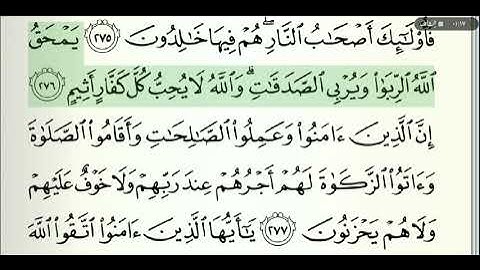 فَأُو۟لَـٰٓئِكَ أَصْحَـٰبُ ٱلنَّارِ ۖ هُمْ فِيهَا خَـٰلِدُونَ ٢٧٥ يَمْحَقُ
ٱللَّهُ ٱلرِّبَوٰا۟ وَيُرْبِى ٱلصَّدَقَـٰتِ ۗ وَٱللَّهُ لَا يُحِبُّ كُلَّ كَفَّارٍ أَثِيمٍ ٢٧٦
إِنَّ ٱلَّذِينَ ءَامَنُوا۟ وَعَمِلُوا۟ ٱلصَّـٰلِحَـٰتِ وَأَقَامُوا۟ ٱلصَّلَوٰةَ
وَءَاتَوُا۟ ٱلزَّكَوٰةَ لَهُمْ أَجْرُهُمْ عِندَ رَبِّهِمْ وَلَا خَوْفٌ عَلَيْهِمْ
وَلَا هُمْ يَحْزَنُونَ ٢٧٧ يَـٰٓأَيُّهَا ٱلَّذِينَ ءَامَنُوا۟ ٱتَّقُوا۟ ٱللَّهَ